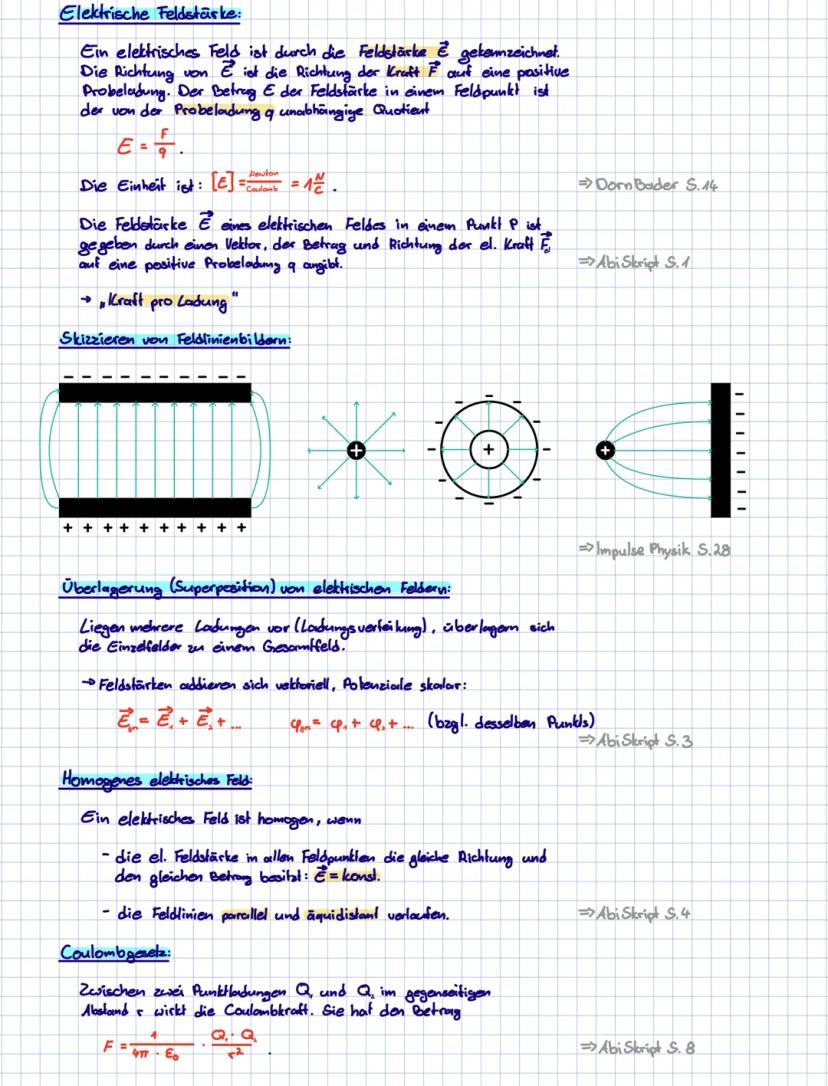 Elektrische Feldstärke:
Ein elektrisches Feld ist durch die Feldstärke E⃗ gekennzeichnet.
Die Richtung von E⃗ ist die Richtung der Kraft F⃗ auf eine positive
Probeladung. Der Betrag E der Feldstärke in einem Feldpunkt ist
der von der Probeladung q unabhängige Quotient
E = F/q .
Die Einheit ist: [E] = Newton/Coulomb = 1 N/C .
⇒ Dorn Bader S.14
Die Feldstärke E⃗ eines elektrischen Feldes in einem Punkt P ist
gegeben durch einen Vektor, der Betrag und Richtung der el. Kraft F⃗el
auf eine positive Probeladung q angibt.
⇒ Abi Skript S.1
→ „Kraft pro Ladung"
Skizzieren von Feldlinienbildern:
- - - - - - - - - -
+ + + + + + + + + +
+
+
+
⇒ Impulse Physik S.28
Überlagerung (Superposition) von elektrischen Feldern:
Liegen mehrere Ladungen vor (Ladungsverteilung), überlagern sich
die Einzelfelder zu einem Gesamtfeld.
→ Feldstärken addieren sich vektoriell, Potenziale skalar:
E⃗ges = E⃗₁ + E⃗₂ + ... φges = φ₁ + φ₂ + ... (bzgl. desselben Punkts)
⇒ Abi Skript S.3
Homogenes elektrisches Feld:
Ein elektrisches Feld ist homogen, wenn
- die el. Feldstärke in allen Feldpunkten die gleiche Richtung und
den gleichen Betrag besitzt: E⃗ = konst.
- die Feldlinien parallel und äquidistant verlaufen.
⇒ Abi Skript S.4
Coulombgesetz:
Zwischen zwei Punktladungen Q₁ und Q₂ im gegenseitigen
Abstand r wirkt die Coulombkraft. Sie hat den Betrag
F = 1/(4π · ε₀) · (Q₁ · Q₂)/r² .
⇒ Abi Skript S. 8